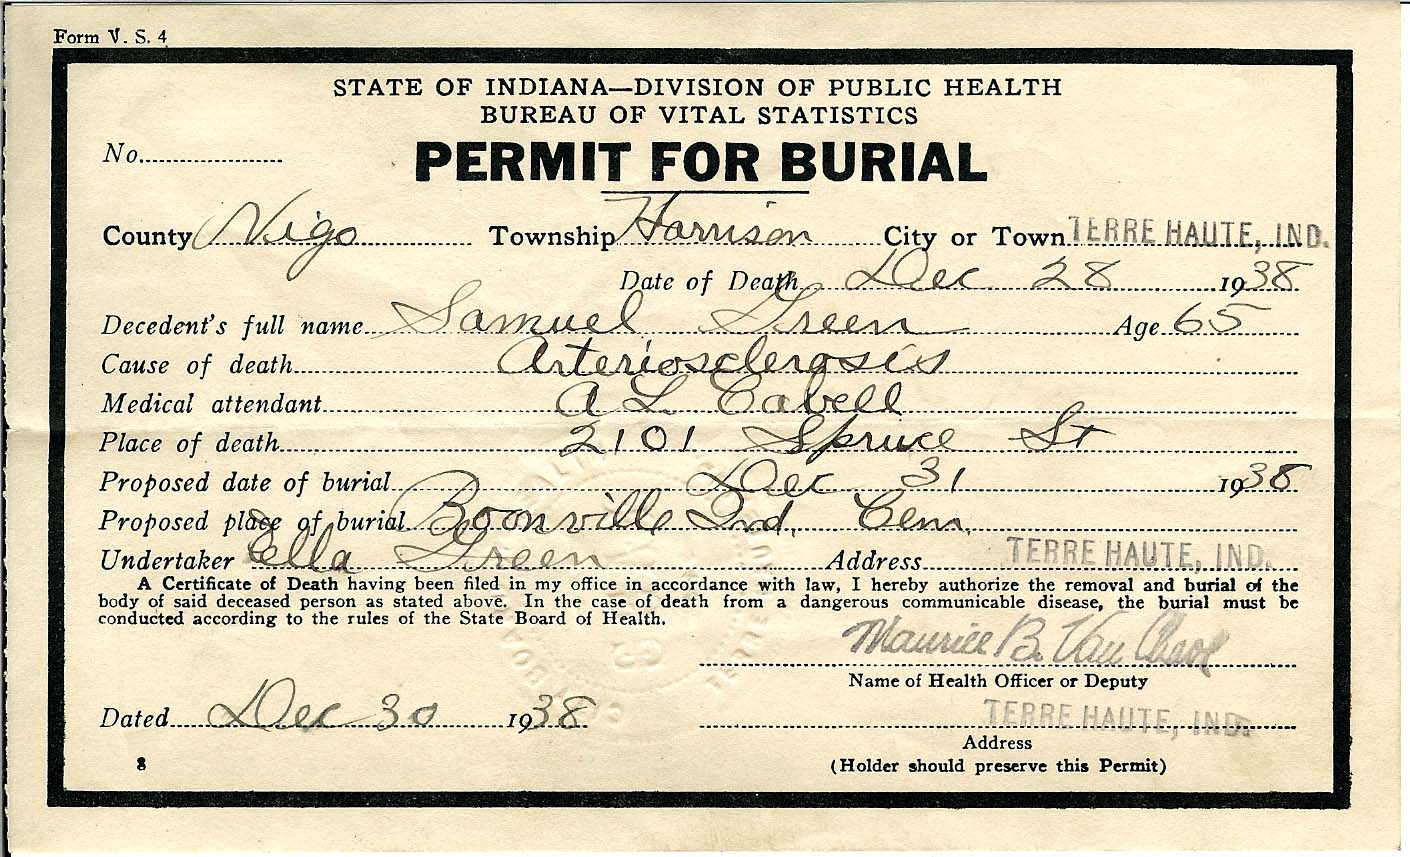 Form V. S. 4
STATE OF INDIANA—DIVISION OF PUBLIC HEALTH
BUREAU OF VITAL STATISTICS
No.
PERMIT FOR BURIAL
County Vigo Township Harrison City or Town TERRE HAUTE, IND.
Date of Death Dec 28 1938
Decedent's full name Samuel Green Age 65
Cause of death Arteriosclerosis
Medical attendant A L Cabell
Place of death 2101 Spruce St
Proposed date of burial Dec 31 1938
Proposed place of burial Boonville Ind. Cem.
Undertaker Ella Green Address TERRE HAUTE, IND.
A Certificate of Death having been filed in my office in accordance with law, I hereby authorize the removal and burial of the
body of said deceased person as stated above. In the case of death from a dangerous communicable disease, the burial must be
conducted according to the rules of the State Board of Health.
Maurice B. Van
Name of Health Officer or Deputy
Dated Dec 30 1938 TERRE HAUTE, IND.
Address
8 (Holder should preserve this Permit)